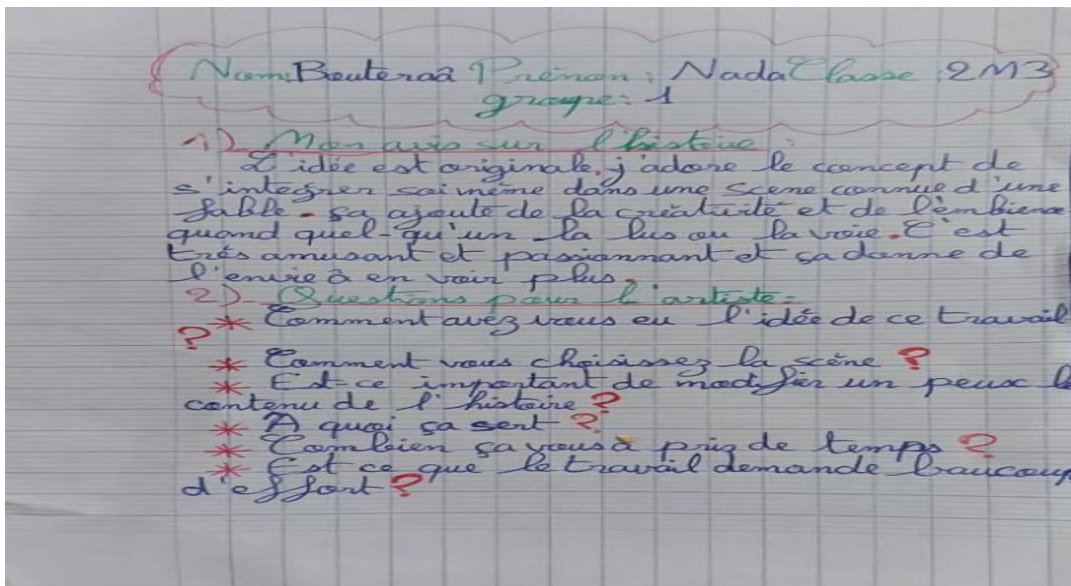 Nom: Bouteraâ Prénom : Nada Classe : 2M3
groupe : 1
1) - Mon avis sur l'histoire :
L'idée est originale. j'adore le concept de
s'integrer soi même dans une scene connue d'une
fable. sa ajoute de la créativité et de l'embience
quand quel-qu'un la lus ou la voie. C'est
très amusant et passionnant et ça donne de
l'envie à en voir plus.
2) - Questions pour l'artiste :
* Comment avez vous eu l'idée de ce travail
?
* Comment vous choisissez la scène ?
* Est-ce important de modifier un peux le
contenu de l'histoire ?
* A quoi ça sert ?
* Combien ça vous à pris de temps ?
* Est ce que le travail demande beaucoup
d'effort ?